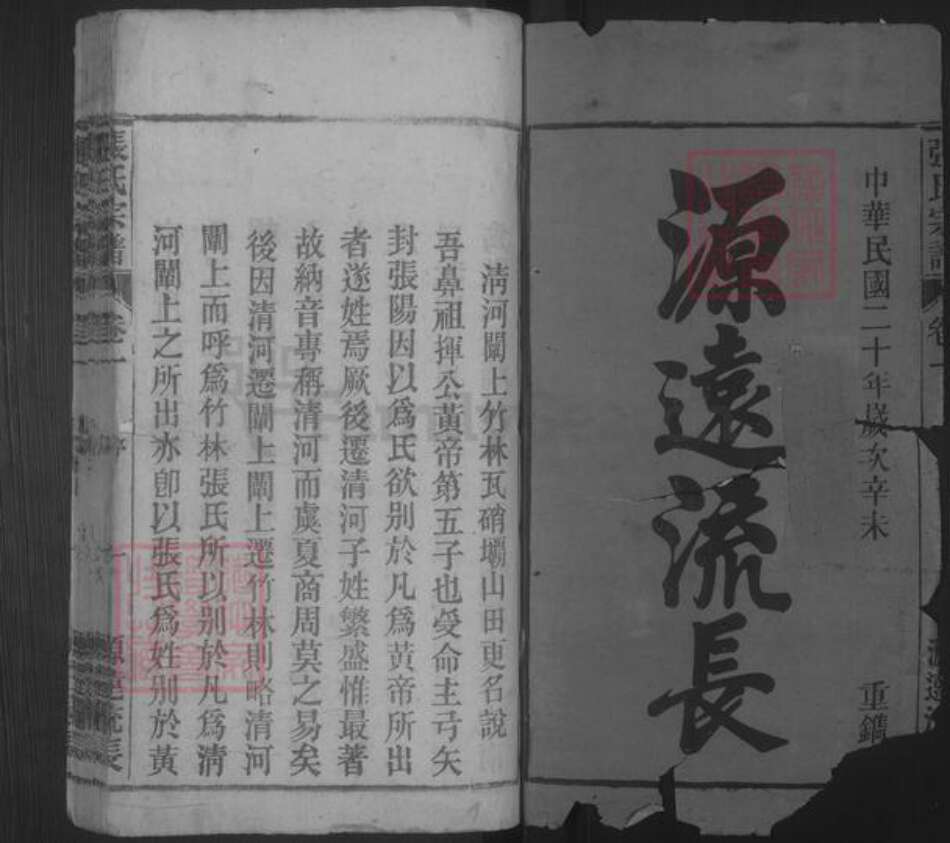 中華民國二十年歲次辛未
重鐫
源遠流長
張氏宗譜
卷一
清河闈上竹林瓦硝壩山田更名說
吾鼻祖揮公黃帝第五子也受命主弓矢
封張陽因以爲氏欲别於凡爲黃帝所出
者遂姓焉厥後遷清河子姓繁盛惟最著
故納音專稱清河而虞夏商周莫之易矣
後因清河遷闈上闈上遷竹林則略清河
闈上而呼爲竹林張氏所以别於凡爲清
河闈上之所出亦卽以張氏爲姓别於黃
張氏宗譜
卷一
序
一
源遠流長